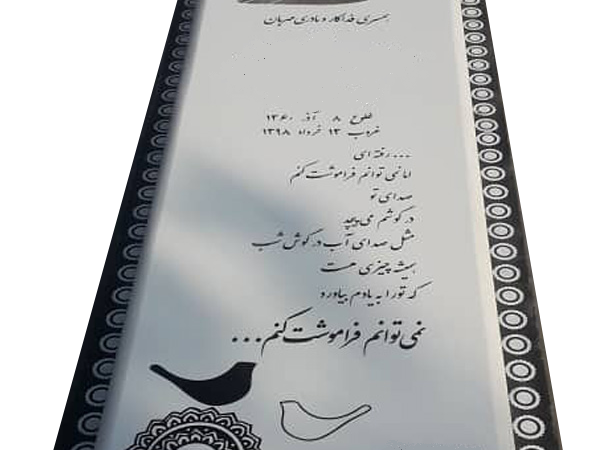 همسری فداکار و مادری مهربان
طلوع ۸ آذر ۱۳۶۰
غروب ۱۳ خرداد ۱۳۹۸
... رفته ای
اما نمی توانم فراموشت کنم
صدای تو
در گوشم می پیچد
مثل صدای آب در گوش شب
همیشه چیزی هست
که تو را به یادم بیاورد
نمی توانم فراموشت کنم...